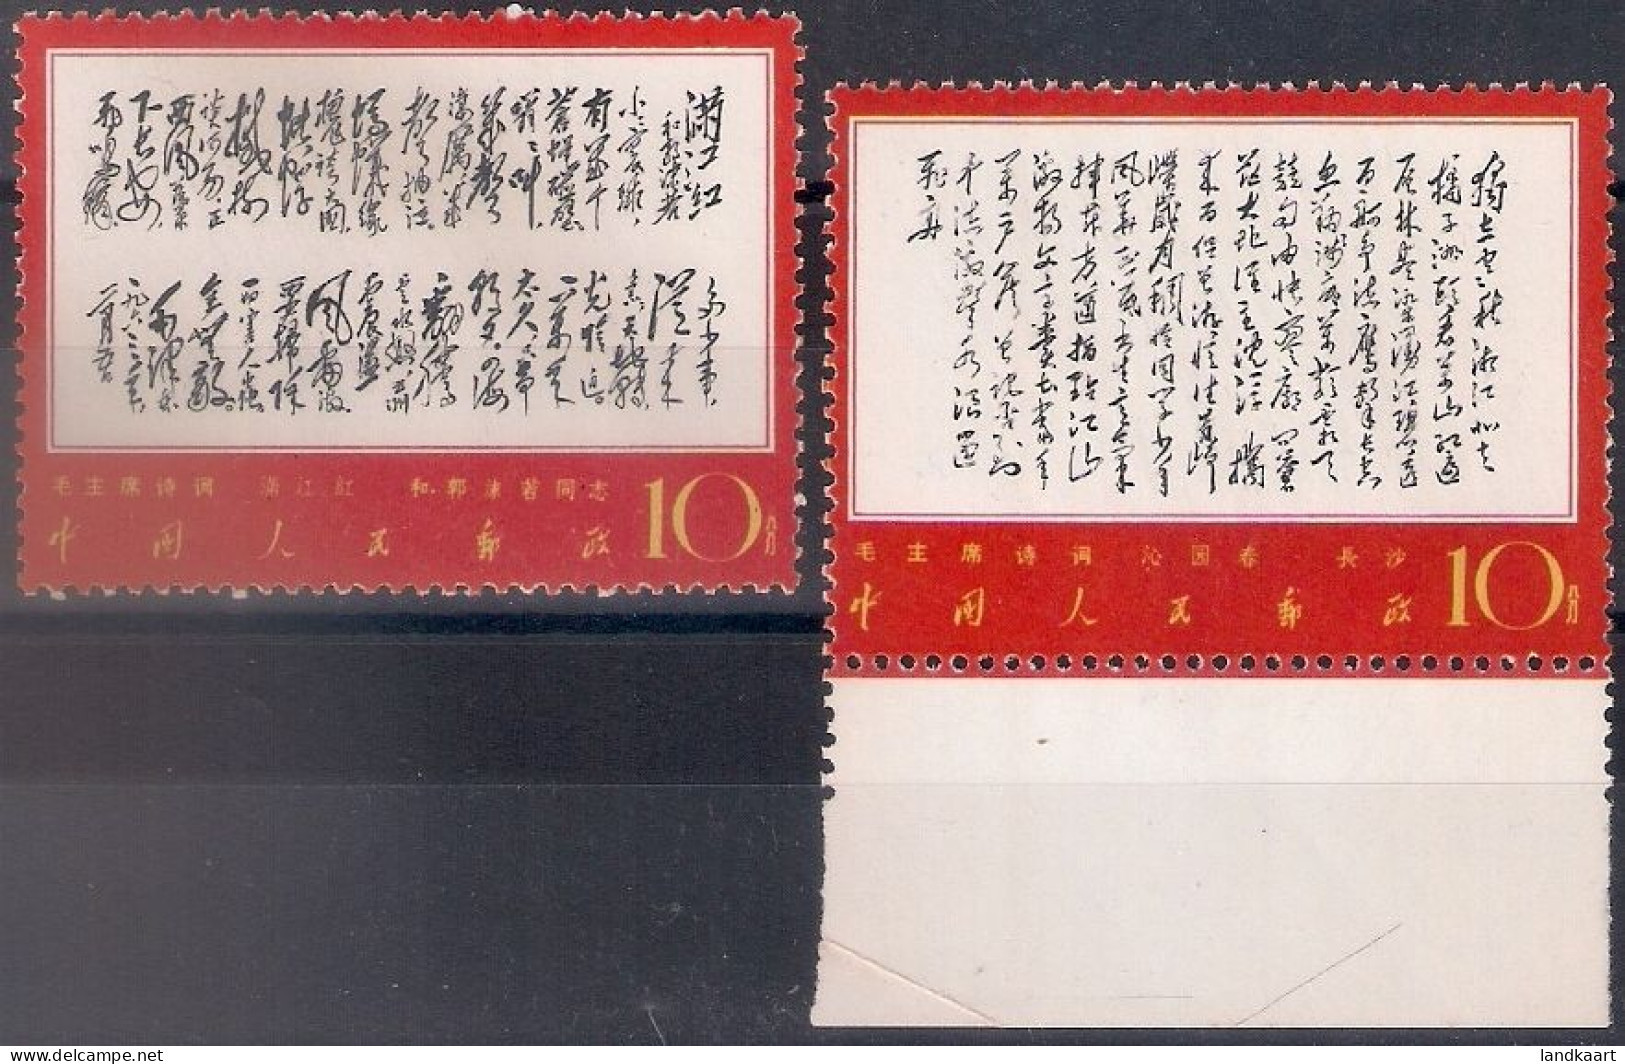 满江红
和郭沫若
小小寰球,
有几个
苍蝇碰壁
嗡嗡叫,
几声
凄厉,几声
抽泣
蚂蚁缘
槐夸大国,
蚍蜉
撼树
谈何易。正
西风落葉
下长安,
飞鸣镝。
多少事,
从来
急;天地转,
光阴迫。
一万年
太久,只争
朝夕。四海
翻腾
云水怒,五洲
震荡
风雷激。
要扫除
一切害人虫,
全无敌。
毛泽东
一九六三年
一月九日
毛主席诗词 满江红 和郭沫若同志
中国人民邮政 10分
独立寒秋湘江北去
橘子洲头看万山红遍
层林尽染漫江碧透
百舸争流鹰击长空
鱼翔浅底万类霜天
竞自由怅寥廓问苍
茫大地谁主沉浮携
来百侣曾游忆往昔峥
嵘岁月稠恰同学少年
风华正茂书生意气
挥斥方遒指点江山
激扬文字粪土当年
万户侯曾记否到
中流激水浪遏
飞舟
毛主席诗词 沁园春 長沙
中国人民邮政 10分
landkaart